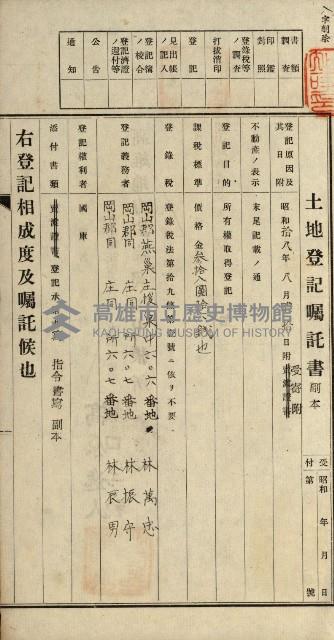 土地登記囑託書 副本
受付 昭和 年 月 日 第 號
登記原因及其日附 昭和拾八年八月 日附 受寄附
不動產ノ表示 末尾記載ノ通
登記目的 所有權取得登記
課稅標準 價格金參拾八圓
登錄稅 登錄稅法第拾九條 號ニ依リ不要
登記義務者
岡山郡燕巢庄 六〇六番地 林萬忠
岡山郡同庄同 所六〇七番地 林振守
岡山郡同庄同 所六〇七番地 林辰男
登記權利者 國庫
添付書類 登記承 指令書寫 副本
右登記相成度及囑託候也
書類調查
印鑑對照
登錄稅等ノ調查
打拔消印
登記
見出帳ノ記入
登記簿ノ校合
登記濟證ノ還付等
公告
通知
高雄市立歷史博物館
KAOHSIUNG MUSEUM OF HISTORY